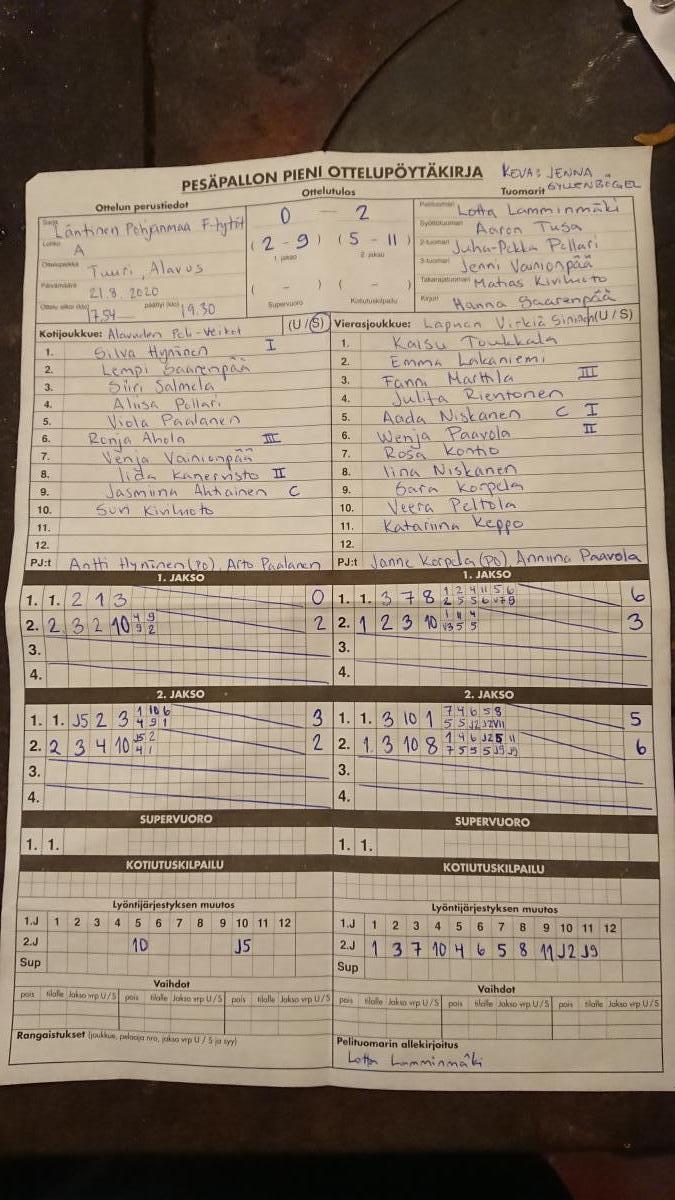 PESÄPALLON PIENI OTTELUPÖYTÄKIRJA
KEVA: JENNA GYLLENBÖGEL
Ottelun perustiedot
Ottelutulos
Tuomarit
Sarja Läntinen Pohjanmaa F-tytöt
Lohko A
Ottelupaikka Tuuri, Alavus
Päivämäärä 21.8.2020
Ottelu alkoi (klo) 17.54 päättyi (klo) 19.30
0 — 2
( 2 - 9 ) ( 5 - 11 )
1. jakso 2. jakso
( - ) ( - )
Supervuoro Kotiutuskilpailu
Pelituomari Lotta Lamminmäki
Syöttötuomari Aaron Tusa
2-tuomari Juha-Pekka Pollari
3-tuomari Jenni Vainionpää
Takarajatuomari Matias Kivihuhto
Kirjuri Hanna Saarenpää
Kotijoukkue: Alavuden Peli-Veikot (U/S)
1. Silva Hyninen I
2. Lempi Saarenpää
3. Siiri Salmela
4. Aliisa Pollari
5. Viola Paalanen
6. Ronja Ahola III
7. Venja Vainionpää
8. Iida Kanervisto II
9. Jasmiina Ahtiainen C
10. Suvi Kivihuhto
11.
12.
PJ:t Antti Hyninen (PO), Arto Paalanen
Vierasjoukkue: Lapuan Virkiä Sininen (U/S)
1. Kaisu Toukkala
2. Emma Lakaniemi
3. Fanni Marttila III
4. Julita Rientonen
5. Aada Niskanen C I
6. Wenja Paavola II
7. Rosa Kontio
8. Iina Niskanen
9. Sara Korpela
10. Veera Peltola
11. Katariina Keppo
12.
PJ:t Janne Korpela (PO) Anniina Paavola
1. JAKSO
1. 1. 2 1 3 0
2. 2 3 2 10 4 9 2
9 2
3.
4.
1. JAKSO
1. 1. 3 7 8 1 2 4 11 5 6 6
2. 1 2 3 10 3
3.
4.
2. JAKSO
1. 1. J5 2 3 1 10 6 3
4 9 1
2. 2 3 4 10 J5 2 2
4 1
3.
4.
2. JAKSO
1. 1. 3 10 1 7 4 6 5 8 5
2. 1. 3 10 8 1 4 6 J2 5 11 6
3.
4.
SUPERVUORO
1. 1.
SUPERVUORO
1. 1.
KOTIUTUSKILPAILU
KOTIUTUSKILPAILU
Lyöntijärjestyksen muutos
1.J 1 2 3 4 5 6 7 8 9 10 11 12
2.J 10 J5
Sup
Lyöntijärjestyksen muutos
1.J 1 2 3 4 5 6 7 8 9 10 11 12
2.J 1 3 7 10 4 6 5 8 11 J2 J9
Sup
Vaihdot
pois tilalle Jakso vrp U/S pois tilalle Jakso vrp U/S pois tilalle Jakso vrp U/S
Vaihdot
pois tilalle Jakso vrp U/S pois tilalle Jakso vrp U/S pois tilalle Jakso vrp U/S
Rangaistukset (joukkue, pelaaja nro, jakso vrp U / S ja syy)
Pelituomarin allekirjoitus
Lotta Lamminmäki